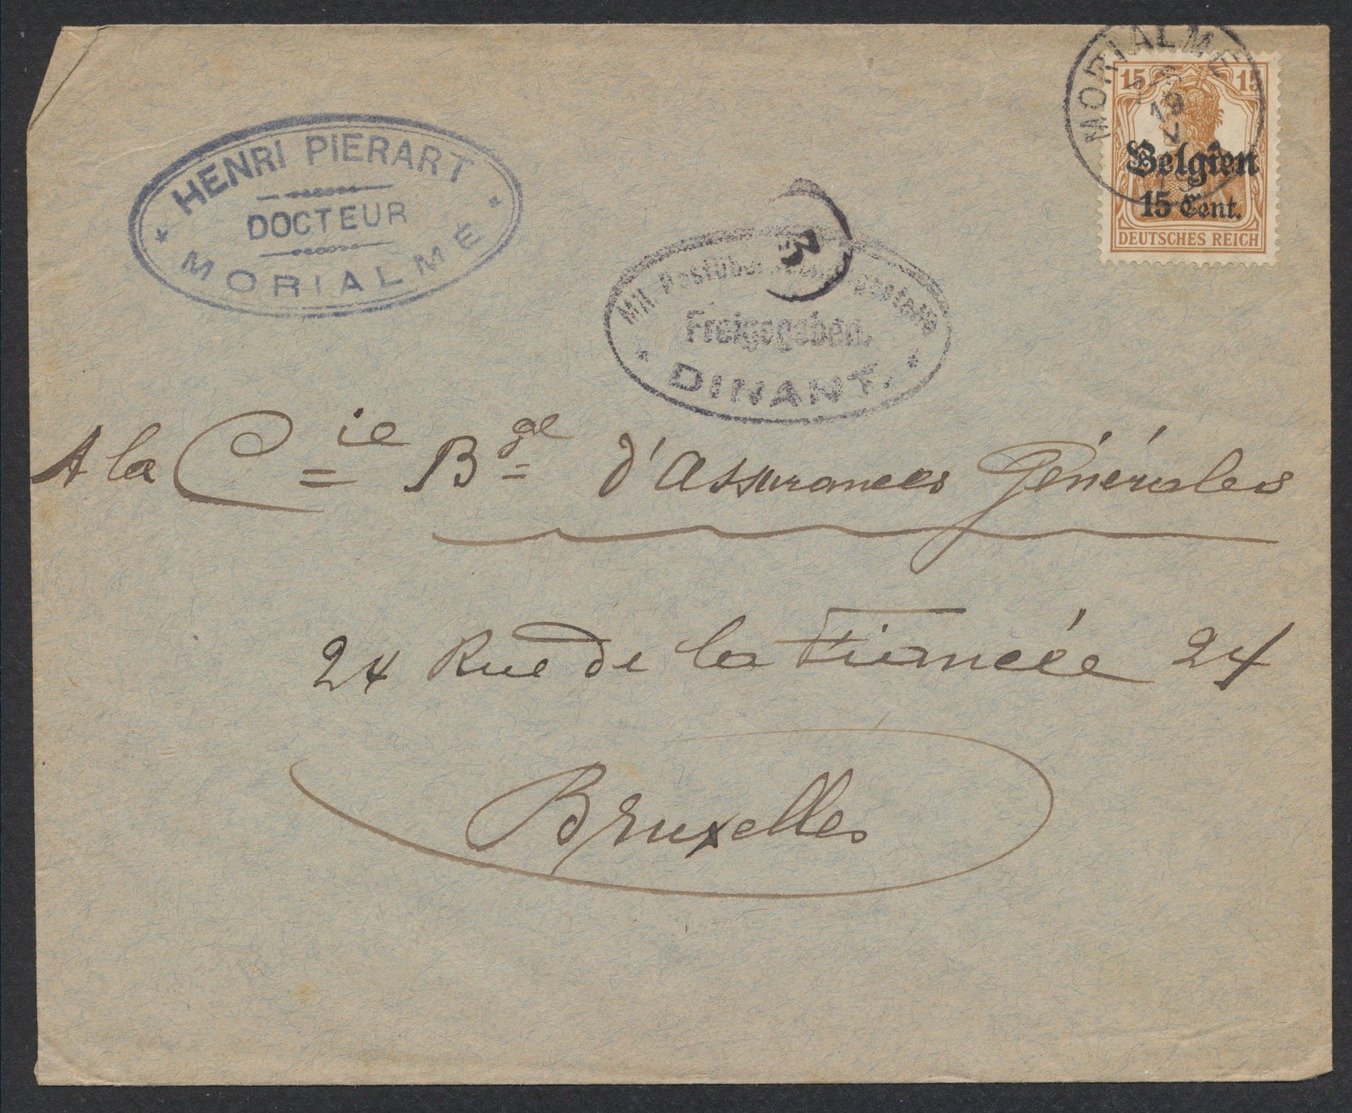 HENRI PIERART
DOCTEUR
MORIALMÉ
MORIALMÉ
15 15
19
Belgien
15 Cent.
DEUTSCHES REICH
3
Mil. Postüberwachungsstelle
Freigegeben.
DINANT.
A la Cie Bge d'Assurances Générales
24 Rue de la Fiancée 24
Bruxelles